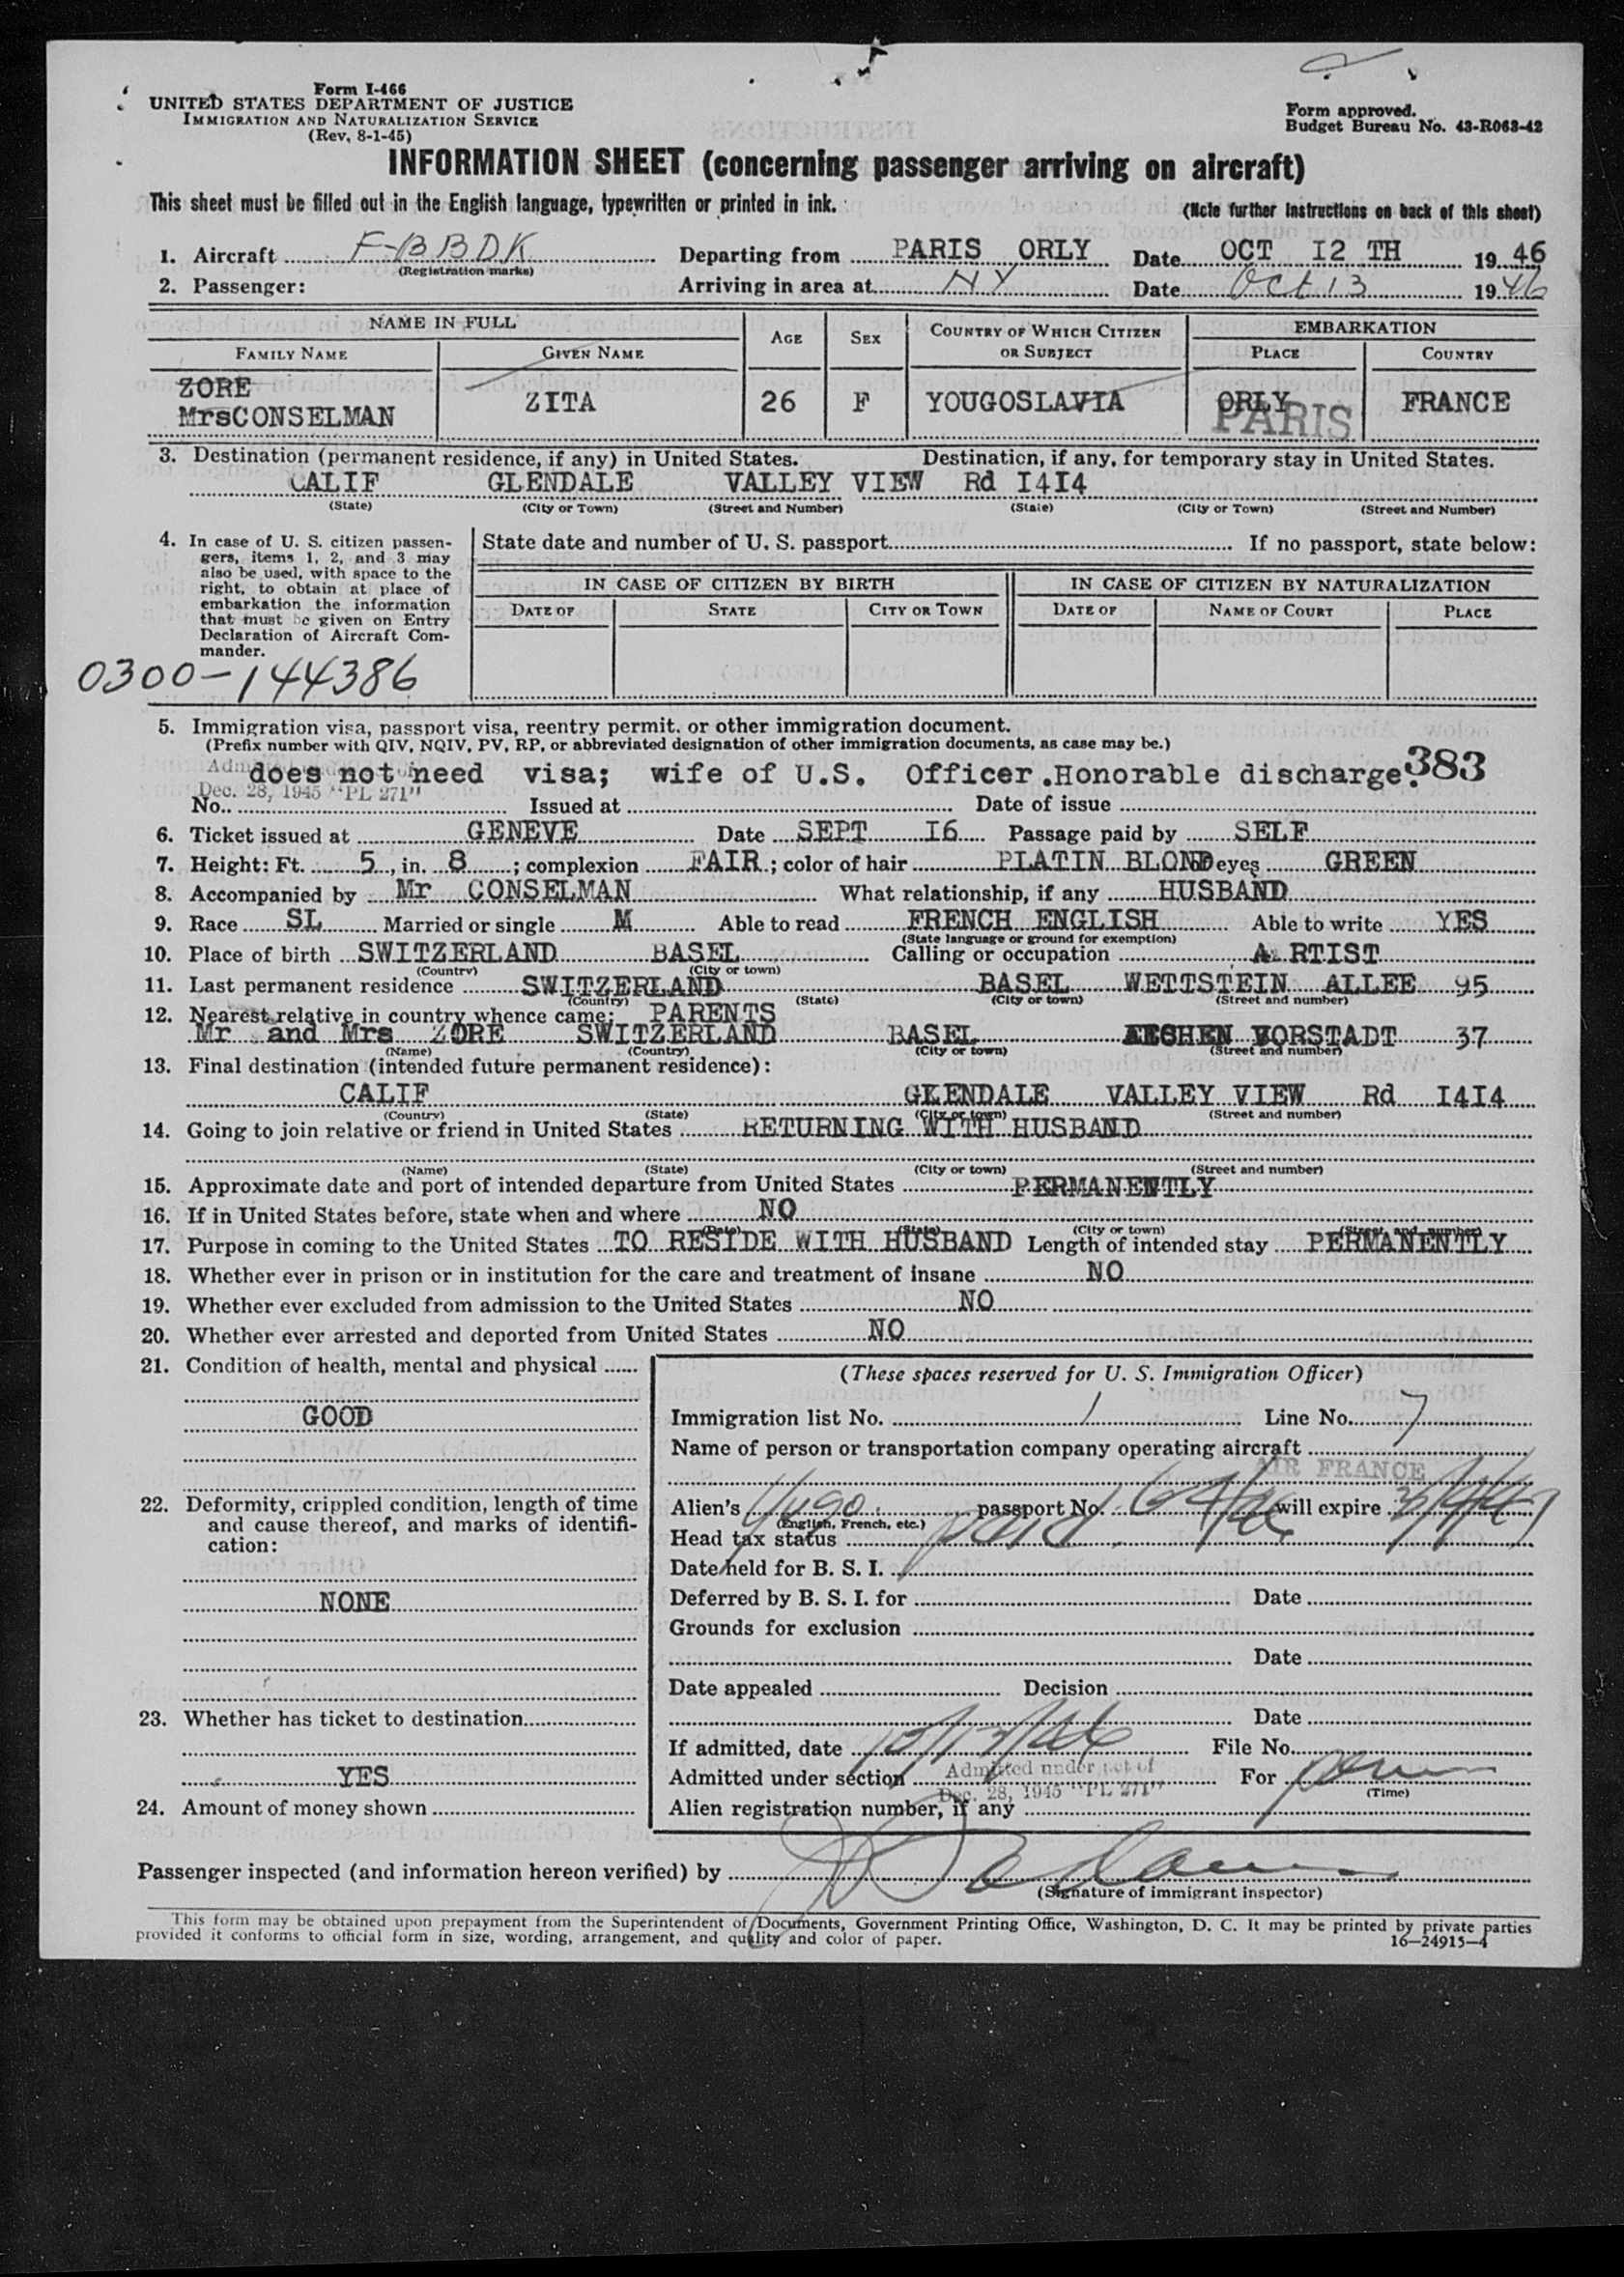 Form I-466
UNITED STATES DEPARTMENT OF JUSTICE
IMMIGRATION AND NATURALIZATION SERVICE
(Rev. 8-1-45)
Form approved.
Budget Bureau No. 43-R063-42
INFORMATION SHEET (concerning passenger arriving on aircraft)
This sheet must be filled out in the English language, typewritten or printed in ink. (Note further instructions on back of this sheet)
1. Aircraft F-BBDK Departing from PARIS ORLY Date OCT I2 TH 19 46
(Registration marks)
2. Passenger: Arriving in area at NY Date Oct 13 19 46
NAME IN FULL AGE SEX COUNTRY OF WHICH CITIZEN OR SUBJECT EMBARKATION
FAMILY NAME GIVEN NAME PLACE COUNTRY
ZORE
MrsCONSELMAN ZITA 26 F YOUGOSLAVIA ORLY FRANCE
PARIS
3. Destination (permanent residence, if any) in United States. Destination, if any, for temporary stay in United States.
CALIF GLENDALE VALLEY VIEW Rd I4I4
(State) (City or Town) (Street and Number) (State) (City or Town) (Street and Number)
4. In case of U. S. citizen passengers, items 1, 2, and 3 may also be used, with space to the right, to obtain at place of embarkation the information that must be given on Entry Declaration of Aircraft Commander.
State date and number of U. S. passport If no passport, state below:
IN CASE OF CITIZEN BY BIRTH IN CASE OF CITIZEN BY NATURALIZATION
DATE OF STATE CITY OR TOWN DATE OF NAME OF COURT PLACE
0300-144386
5. Immigration visa, passport visa, reentry permit, or other immigration document.
(Prefix number with QIV, NQIV, PV, RP, or abbreviated designation of other immigration documents, as case may be.)
does not need visa; wife of U.S. Officer.Honorable discharge. 383
Dec. 28, 1945 "PL 271"
No. Issued at Date of issue
6. Ticket issued at GENEVE Date SEPT I6 Passage paid by SELF
7. Height: Ft. 5, in. 8; complexion FAIR; color of hair PLATIN BLOND eyes GREEN
8. Accompanied by Mr CONSELMAN What relationship, if any HUSBAND
9. Race SL Married or single M Able to read FRENCH ENGLISH Able to write YES
(State language or ground for exemption)
10. Place of birth SWITZERLAND BASEL Calling or occupation A RTIST
(Country) (City or town)
11. Last permanent residence SWITZERLAND BASEL WETTSTEIN ALLEE 95
(Country) (State) (City or town) (Street and number)
12. Nearest relative in country whence came: PARENTS
Mr and Mrs ZORE SWITZERLAND BASEL AESCHEN VORSTADT 37
(Name) (Country) (City or town) (Street and number)
13. Final destination (intended future permanent residence):
CALIF GLENDALE VALLEY VIEW Rd I4I4
(Country) (State) (City or town) (Street and number)
14. Going to join relative or friend in United States RETURNING WITH HUSBAND
(Name) (State) (City or town) (Street and number)
15. Approximate date and port of intended departure from United States PERMANENTLY
16. If in United States before, state when and where NO
(Date) (State) (City or town) (Street and number)
17. Purpose in coming to the United States TO RESIDE WITH HUSBAND Length of intended stay PERMANENTLY
18. Whether ever in prison or in institution for the care and treatment of insane NO
19. Whether ever excluded from admission to the United States NO
20. Whether ever arrested and deported from United States NO
21. Condition of health, mental and physical
GOOD
22. Deformity, crippled condition, length of time and cause thereof, and marks of identification:
NONE
23. Whether has ticket to destination
YES
24. Amount of money shown
(These spaces reserved for U. S. Immigration Officer)
Immigration list No. 1 Line No. 7
Name of person or transportation company operating aircraft
AIR FRANCE
Alien's Yugo. passport No. will expire
(English, French, etc.)
Head tax status paid
Date held for B. S. I.
Deferred by B. S. I. for Date
Grounds for exclusion
Date
Date appealed Decision
Date
If admitted, date 10/13/46 File No.
Admitted under section Admitted under act of For perm
Dec. 28, 1945 "PL 271" (Time)
Alien registration number, if any
Passenger inspected (and information hereon verified) by
(Signature of immigrant inspector)
This form may be obtained upon prepayment from the Superintendent of Documents, Government Printing Office, Washington, D. C. It may be printed by private parties
provided it conforms to official form in size, wording, arrangement, and quality and color of paper. 16—24915-4